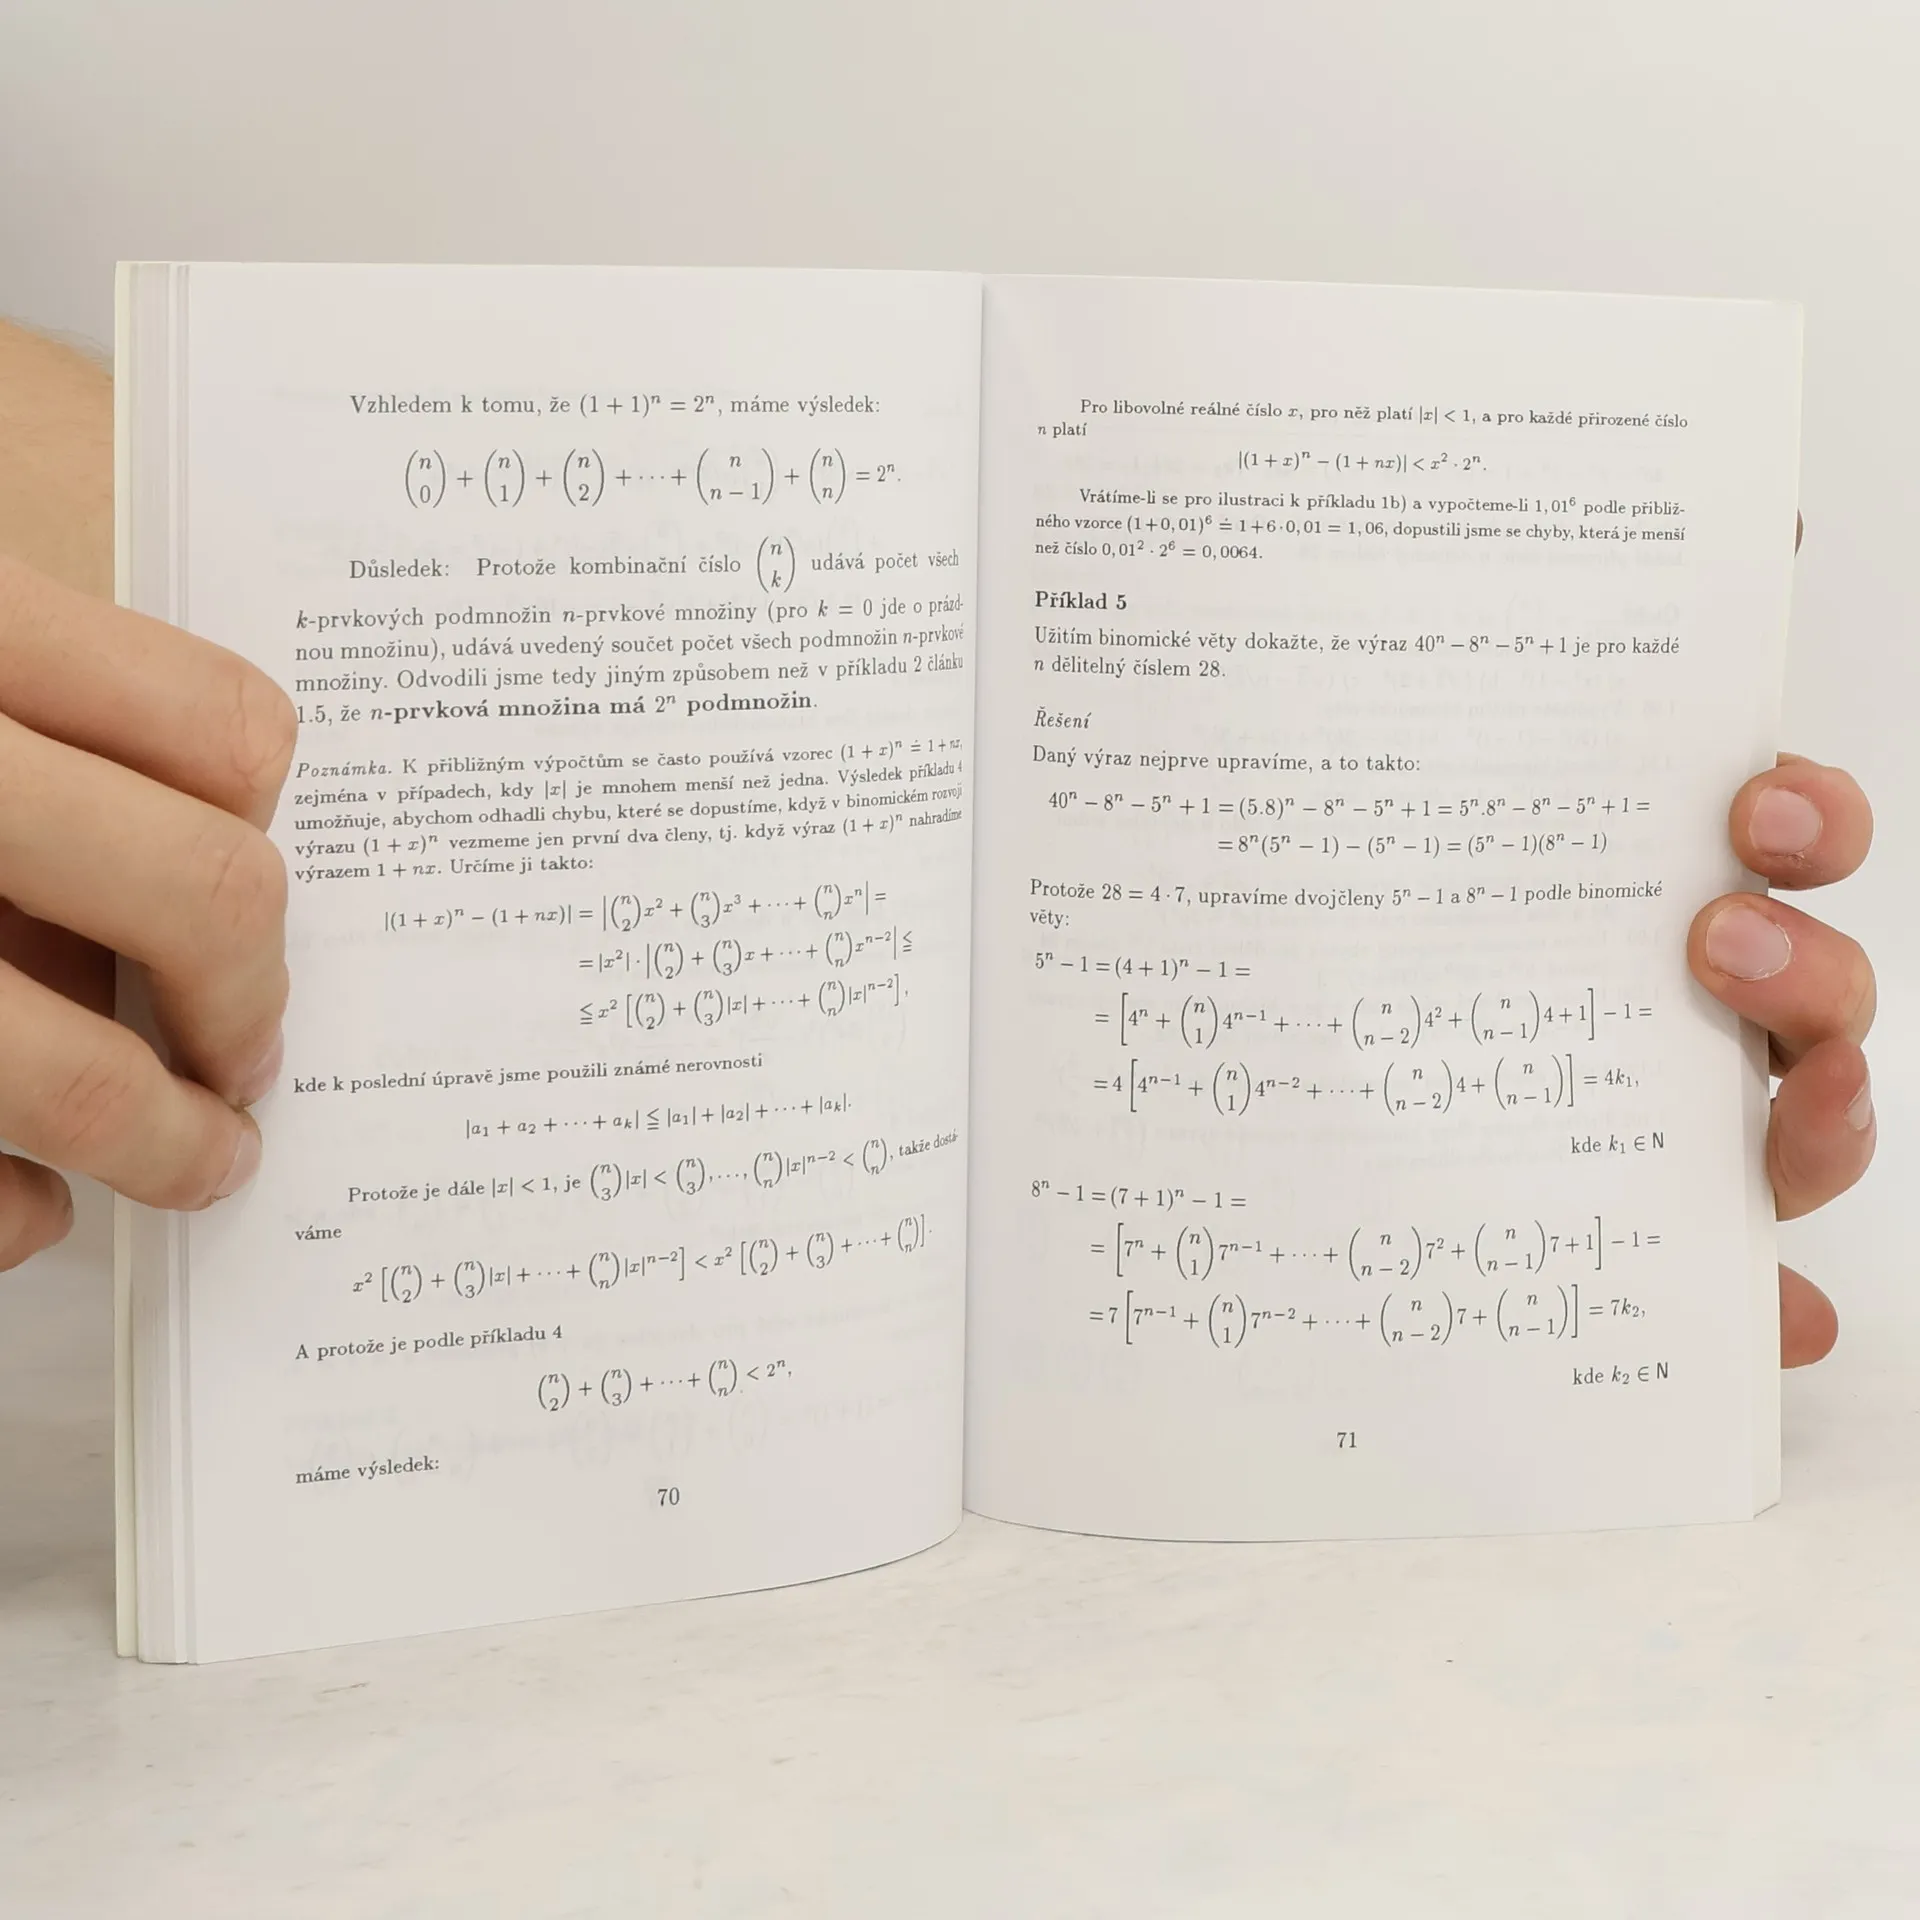 Vzhledem k tomu, že (1 + 1)ⁿ = 2ⁿ, máme výsledek:
(n 0) + (n 1) + (n 2) + ··· + (n n − 1) + (n n) = 2ⁿ.
Důsledek: Protože kombinační číslo (n k) udává počet všech
k-prvkových podmnožin n-prvkové množiny (pro k = 0 jde o prázd-
nou množinu), udává uvedený součet počet všech podmnožin n-prvkové
množiny. Odvodili jsme tedy jiným způsobem než v příkladu 2 článku
1.5, že n-prvková množina má 2ⁿ podmnožin.
Poznámka. K přibližným výpočtům se často používá vzorec (1 + x)ⁿ ≐ 1 + nx,
zejména v případech, kdy |x| je mnohem menší než jedna. Výsledek příkladu 4
umožňuje, abychom odhadli chybu, které se dopustíme, když v binomickém rozvoji
výrazu (1 + x)ⁿ vezmeme jen první dva členy, tj. když výraz (1 + x)ⁿ nahradíme
výrazem 1 + nx. Určíme ji takto:
|(1 + x)ⁿ − (1 + nx)| = |(n 2)x² + (n 3)x³ + ··· + (n n)xⁿ| =
= |x²| · |(n 2) + (n 3)x + ··· + (n n)xⁿ⁻²| ≦
≦ x² [(n 2) + (n 3)|x| + ··· + (n n)|x|ⁿ⁻²],
kde k poslední úpravě jsme použili známé nerovnosti
|a₁ + a₂ + ··· + aₖ| ≦ |a₁| + |a₂| + ··· + |aₖ|.
Protože je dále |x| < 1, je (n 3)|x| < (n 3), ..., (n n)|x|ⁿ⁻² < (n n), takže dostá-
váme
x² [(n 2) + (n 3)|x| + ··· + (n n)|x|ⁿ⁻²] < x² [(n 2) + (n 3) + ··· + (n n)].
A protože je podle příkladu 4
(n 2) + (n 3) + ··· + (n n) < 2ⁿ,
máme výsledek:
70
Pro libovolné reálné číslo x, pro něž platí |x| < 1, a pro každé přirozené číslo
n platí
|(1 + x)ⁿ − (1 + nx)| < x² · 2ⁿ.
Vrátíme-li se pro ilustraci k příkladu 1b) a vypočteme-li 1, 01⁶ podle přibliž-
ného vzorce (1+0, 01)⁶ ≐ 1+6·0, 01 = 1, 06, dopustili jsme se chyby, která je menší
než číslo 0, 01² · 2⁶ = 0, 0064.
Příklad 5
Užitím binomické věty dokažte, že výraz 40ⁿ − 8ⁿ − 5ⁿ + 1 je pro každé
n dělitelný číslem 28.
Řešení
Daný výraz nejprve upravíme, a to takto:
40ⁿ − 8ⁿ − 5ⁿ + 1 = (5.8)ⁿ − 8ⁿ − 5ⁿ + 1 = 5ⁿ.8ⁿ − 8ⁿ − 5ⁿ + 1 =
= 8ⁿ(5ⁿ − 1) − (5ⁿ − 1) = (5ⁿ − 1)(8ⁿ − 1)
Protože 28 = 4 · 7, upravíme dvojčleny 5ⁿ − 1 a 8ⁿ − 1 podle binomické
věty:
5ⁿ − 1 = (4 + 1)ⁿ − 1 =
= [4ⁿ + (n 1)4ⁿ⁻¹ + ··· + (n n − 2)4² + (n n − 1)4 + 1] − 1 =
= 4 [4ⁿ⁻¹ + (n 1)4ⁿ⁻² + ··· + (n n − 2)4 + (n n − 1)] = 4k₁,
kde k₁ ∈ N
8ⁿ − 1 = (7 + 1)ⁿ − 1 =
= [7ⁿ + (n 1)7ⁿ⁻¹ + ··· + (n n − 2)7² + (n n − 1)7 + 1] − 1 =
= 7 [7ⁿ⁻¹ + (n 1)7ⁿ⁻² + ··· + (n n − 2)7 + (n n − 1)] = 7k₂,
kde k₂ ∈ N
71